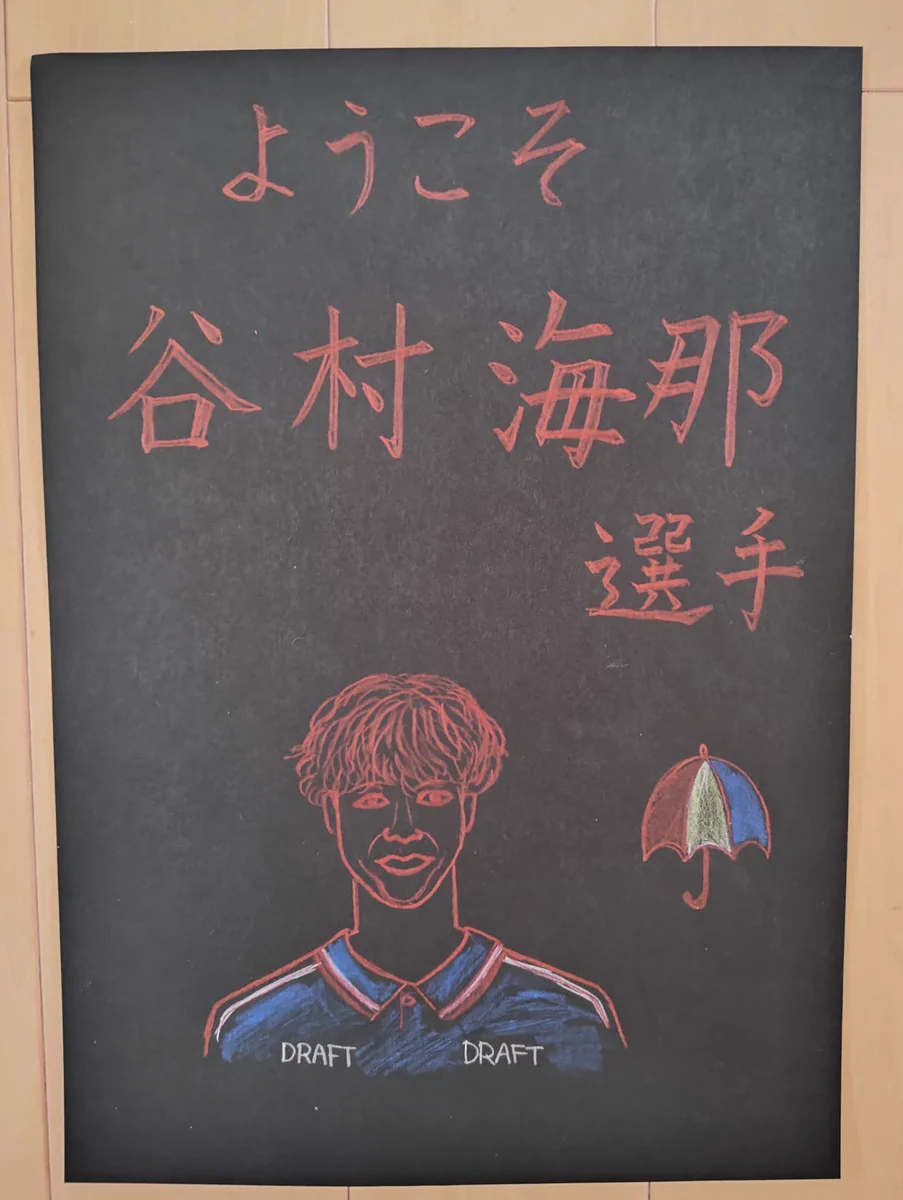 ようこそ
谷村 海那
選手
DRAFT DRAFT